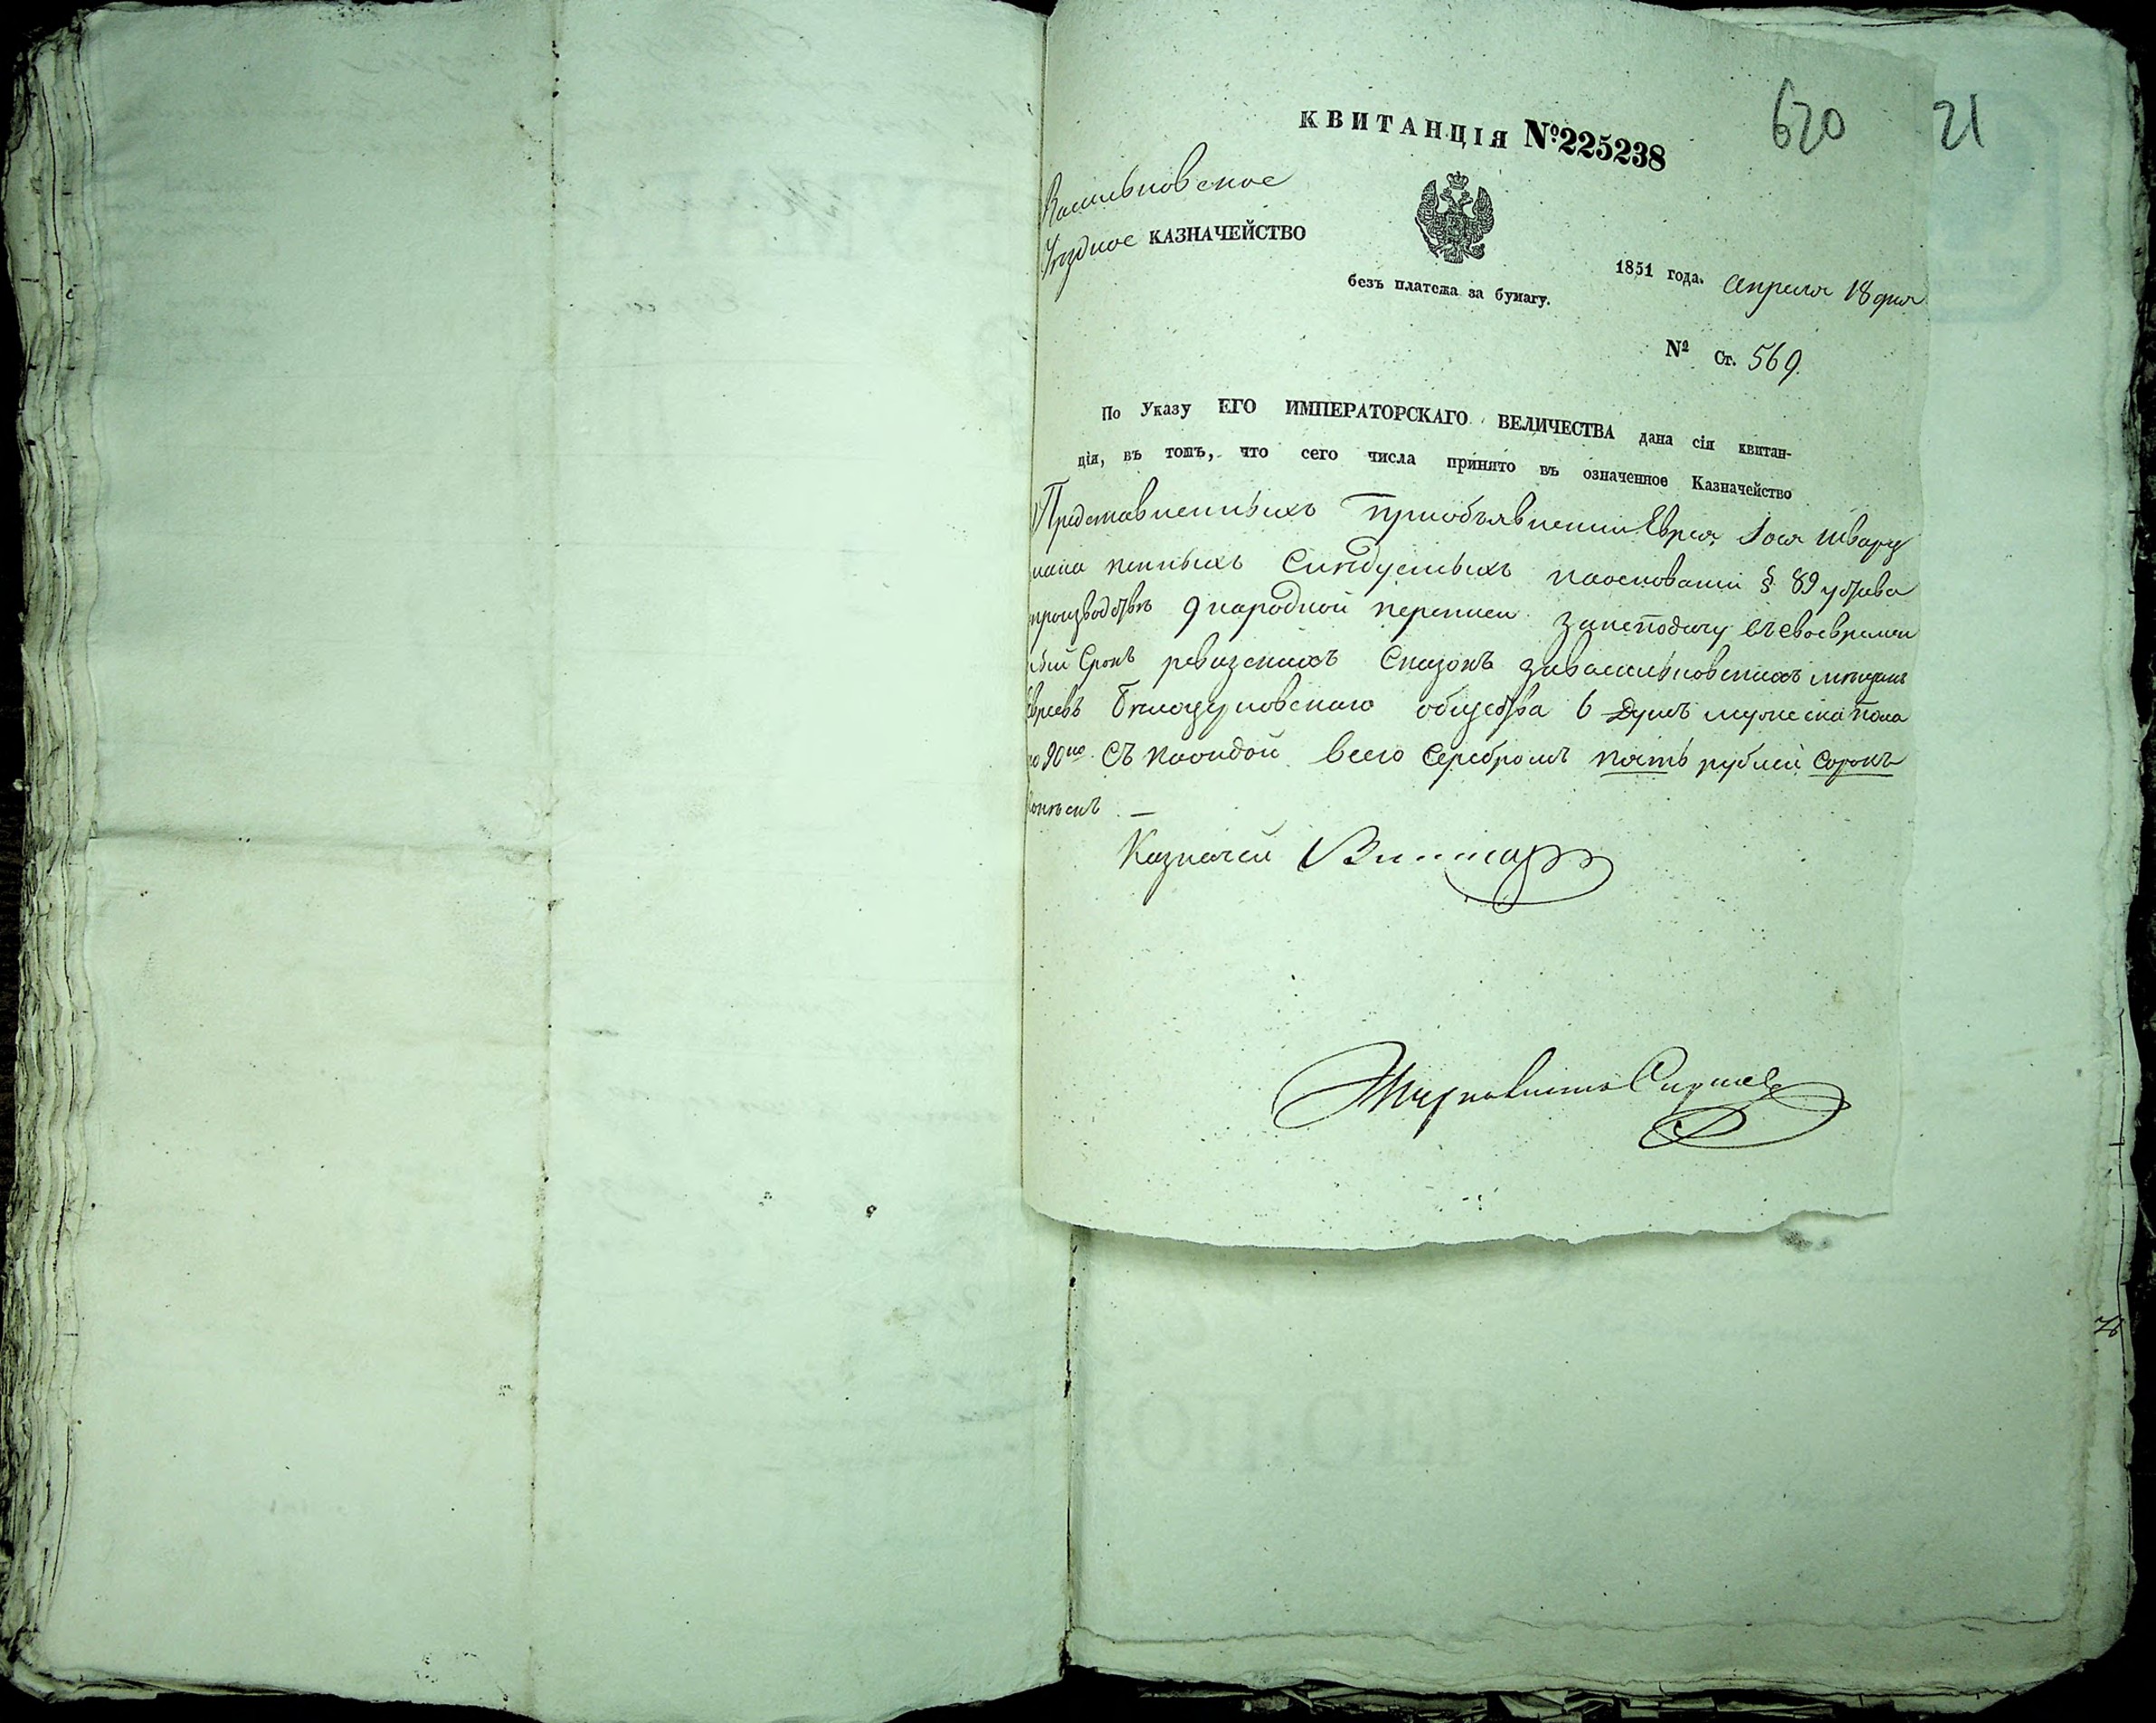 КВИТАНЦІЯ №225238
620 21
Васильковское
Уездное КАЗНАЧЕЙСТВО
безъ платежа за бумагу.
1851 года. апреля 18 дня
№ Ст. 569.
По Указу ЕГО ИМПЕРАТОРСКАГО ВЕЛИЧЕСТВА дана сія квитан-
ція, въ томъ, что сего числа принято въ означенное Казначейство
Представленныхъ приобъявленіи Еврея Шварц
мана пенныхъ Следуемыхъ наосновании § 89 устава
производствѣ 9 народной переписи занеподачу въ своевремен
ный Срокъ ревизскихъ Сказокъ заВасильковскихъ мещанъ
Евреевъ Белоцерковскаго общества 6 Душъ мужеска пола
по 90 ко. Съ каждой всего Серебромъ пять рублей сорокъ
копѣекъ. —
Казначей
КОП: СЕР